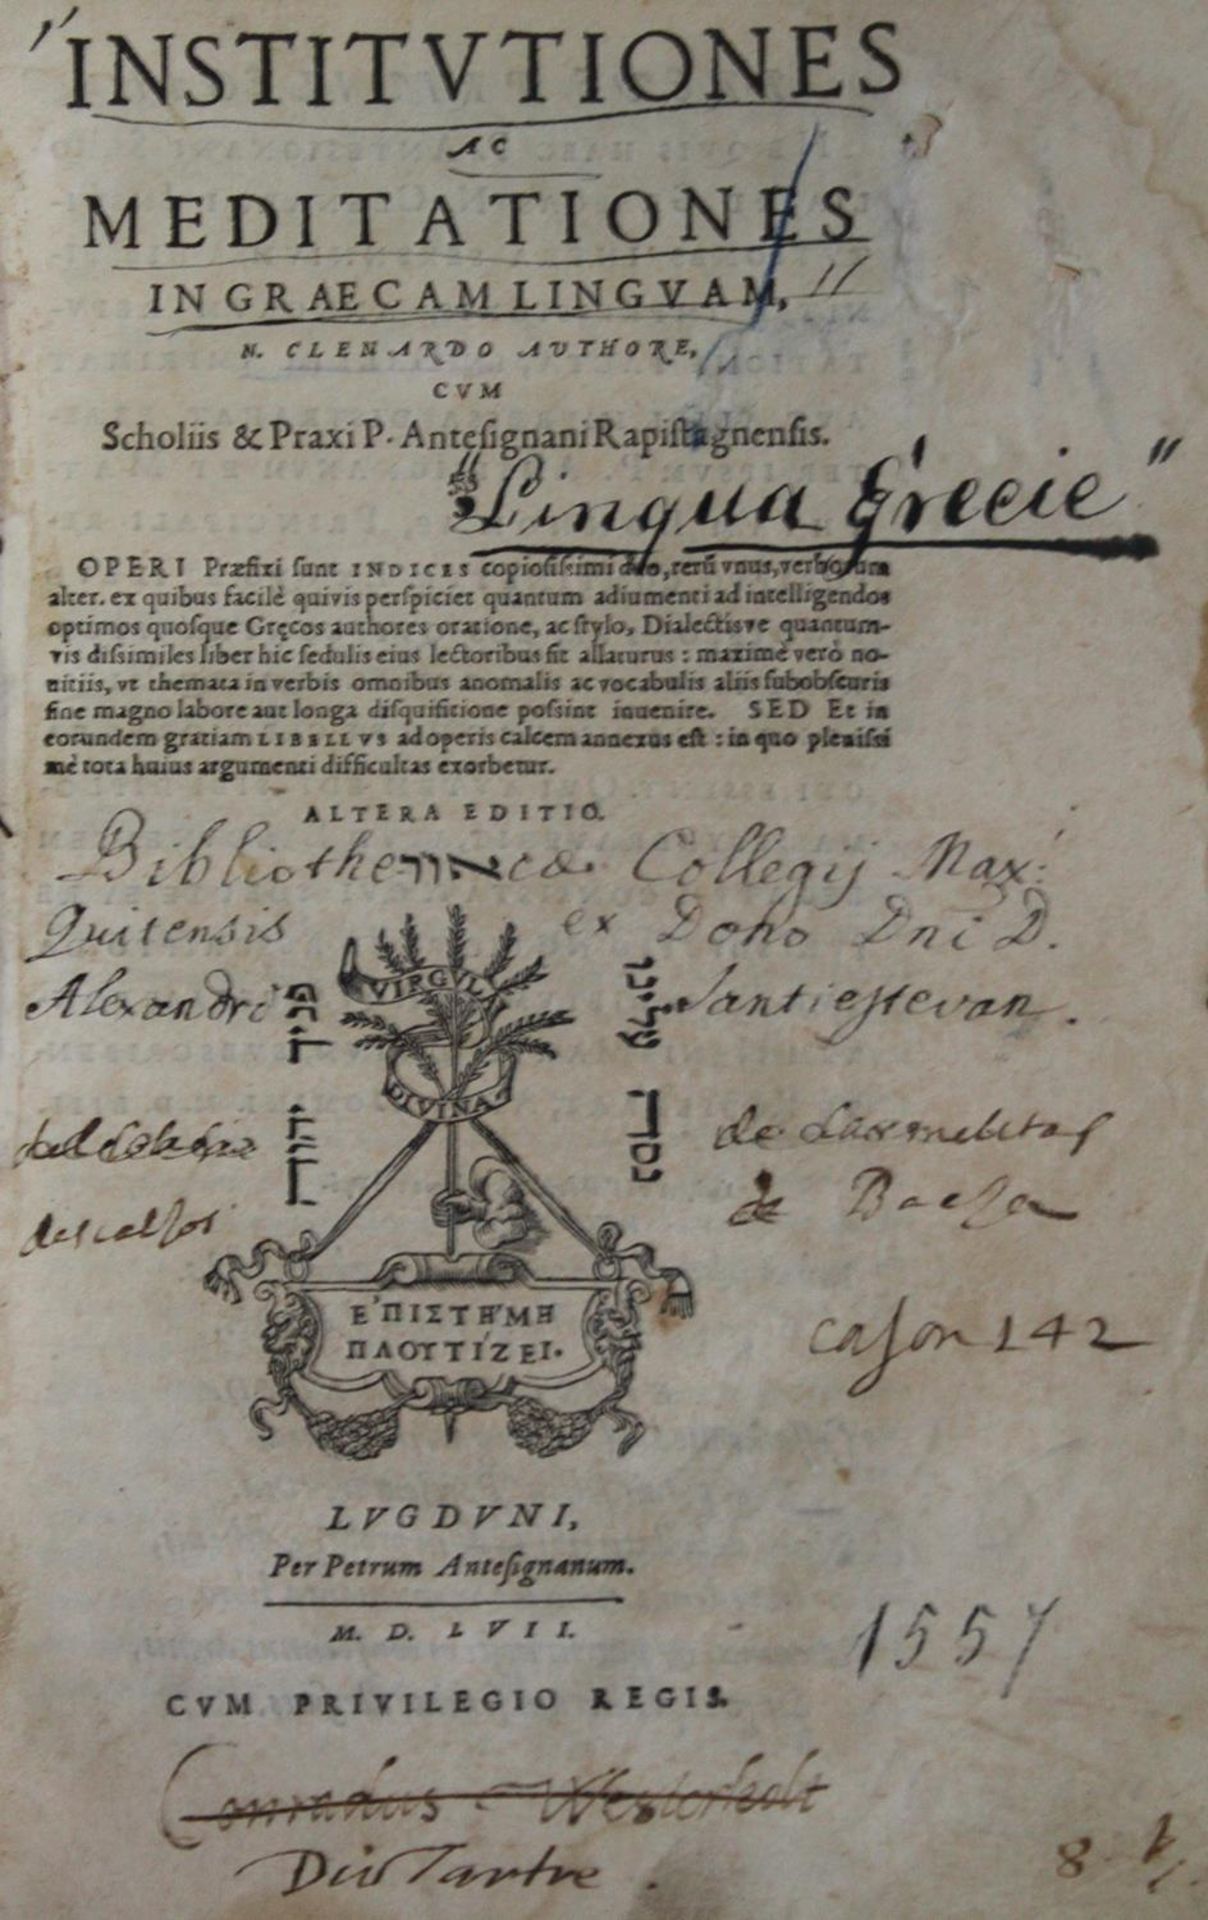 INSTITVTIONES
AC
MEDITATIONES
IN GRAECAM LINGVAM,
N. CLENARDO AVTHORE,
CVM
Scholiis & Praxi P. Anteſignani Rapiſtagnenſis.
"Lingua Grecie"
OPERI Præfixi ſunt INDICES copioſiſsimi duo, rerũ vnus, verborum
alter. ex quibus facilè quivis perſpiciet quantum adiumenti ad intelligendos
optimos quoſque Gręcos authores oratione, ac ſtylo, Dialectisve quantum-
vis diſsimiles liber hic ſedulis eius lectoribus ſit allaturus : maximè verò no-
uitiis, vt themata in verbis omnibus anomalis ac vocabulis aliis ſubobſcuris
ſine magno labore aut longa diſquiſitione poſsint inuenire. SED Et in
eorundem gratiam LIBELLVS ad operis calcem annexus eſt : in quo pleniſsi
mè tota huius argumenti difficultas exorbetur.
ALTERA EDITIO.
Bibliothecæ Collegij Max.
Quitensis ex Dono Dni D.
Alexandri Santiestevan.
VIRGVLA
DIVINA
יהוה
de
descalſos de Baeſa
caſon 142
ΕΠΙΣΤΗΜΗ
ΠΛΟΥΤΙΖΕΙ.
LVGDVNI,
Per Petrum Anteſignanum.
M. D. LVII.
1557
CVM PRIVILEGIO REGIS.
Conradus Westerholt
8